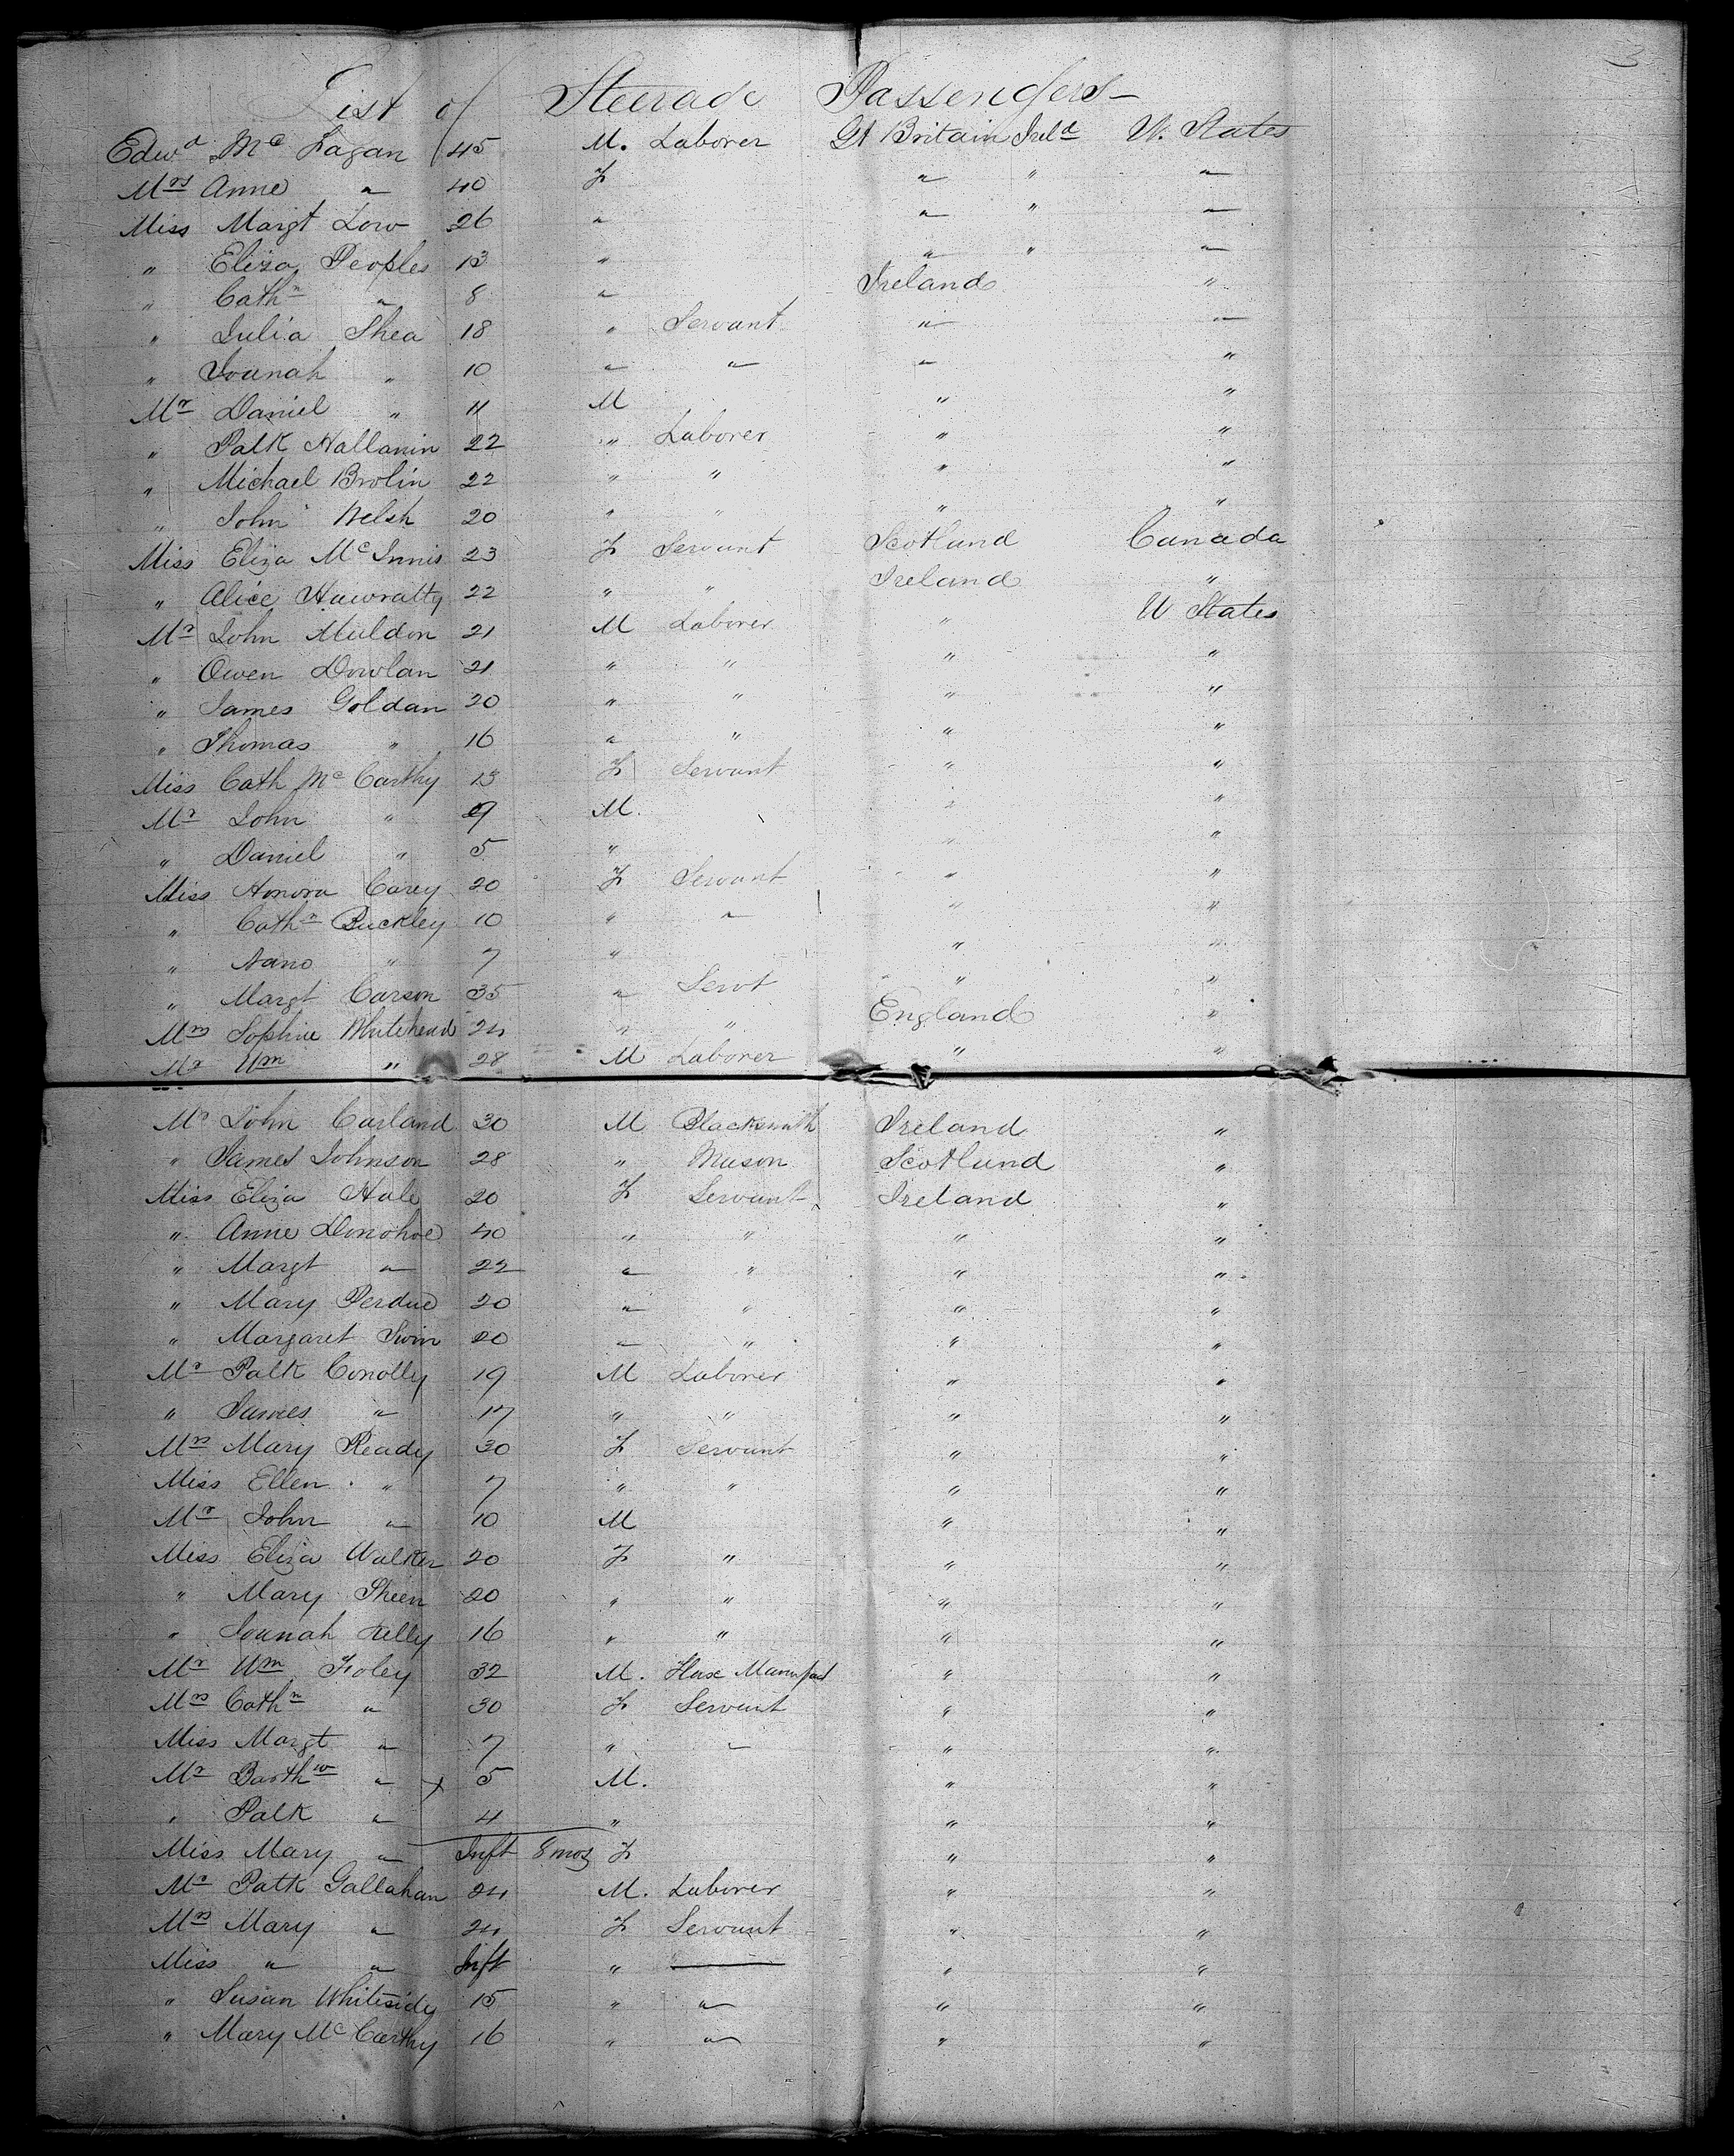 3
List of Steerage Passengers
Edwd Mc Fagan 45 M. Laborer Gt Britain Ireld U. States
Mrs Anne " 40 F " " "
Miss Margt Low 26 " " " "
" Eliza Peoples 13 " " " "
" Cathn " 8 " Ireland "
" Julia Shea 18 " Servant " "
" Jounah " 10 " " " "
Mr Daniel " 11 M " "
" Patk Hallanin 22 " Laborer " "
" Michael Brolin 22 " " " "
" John Welsh 20 " " " "
Miss Eliza McInnis 23 F Servant Scotland Canada
" Alice Hawratty 22 " " Ireland "
Mr John Muldon 21 M Laborer " U States
" Owen Dowlan 21 " " " "
" James Goldan 20 " " " "
" Thomas " 16 " " " "
Miss Cath McCarthy 13 F Servant " "
Mr John " 9 M. " "
" Daniel " 5 " " "
Miss Honora Carey 20 F Servant " "
" Cathn Buckley 10 " " " "
" Nano " 7 " " "
" Margt Carson 35 " Servt " "
Mrs Sophia Whitehead 24 " " England "
Mr Wm " 28 M Laborer " "
Mr John Carland 30 M Blacksmith Ireland "
" James Johnson 28 " Mason Scotland "
Miss Eliza Hale 20 F Servant Ireland "
" Anne Donohoe 40 " " " "
" Margt " 22 " " " "
" Mary Perdue 20 " " " "
" Margaret Swin 20 " " " "
Mr Patk Conolly 19 M Laborer " "
" James " 17 " " " "
Mrs Mary Ready 30 F Servant " "
Miss Ellen " 7 " " " "
Mr John " 10 M " "
Miss Eliza Walker 20 F " " "
" Mary Sheen 20 " " " "
" Jounah Kelly 16 " " " "
Mr Wm Foley 32 M. Flax Manufact " "
Mrs Cathn " 30 F Servant " "
Miss Margt " 7 " " " "
Mr Barthw " x 5 M. " "
" Patk " 4 " " "
Miss Mary " Inft 8 mos F " "
Mr Patk Gallahan 24 M. Laborer " "
Mrs Mary " 24 F Servant " "
Miss " " Inft " — " "
" Susan Whiteside 15 " " " "
" Mary McCarthy 16 " " " "